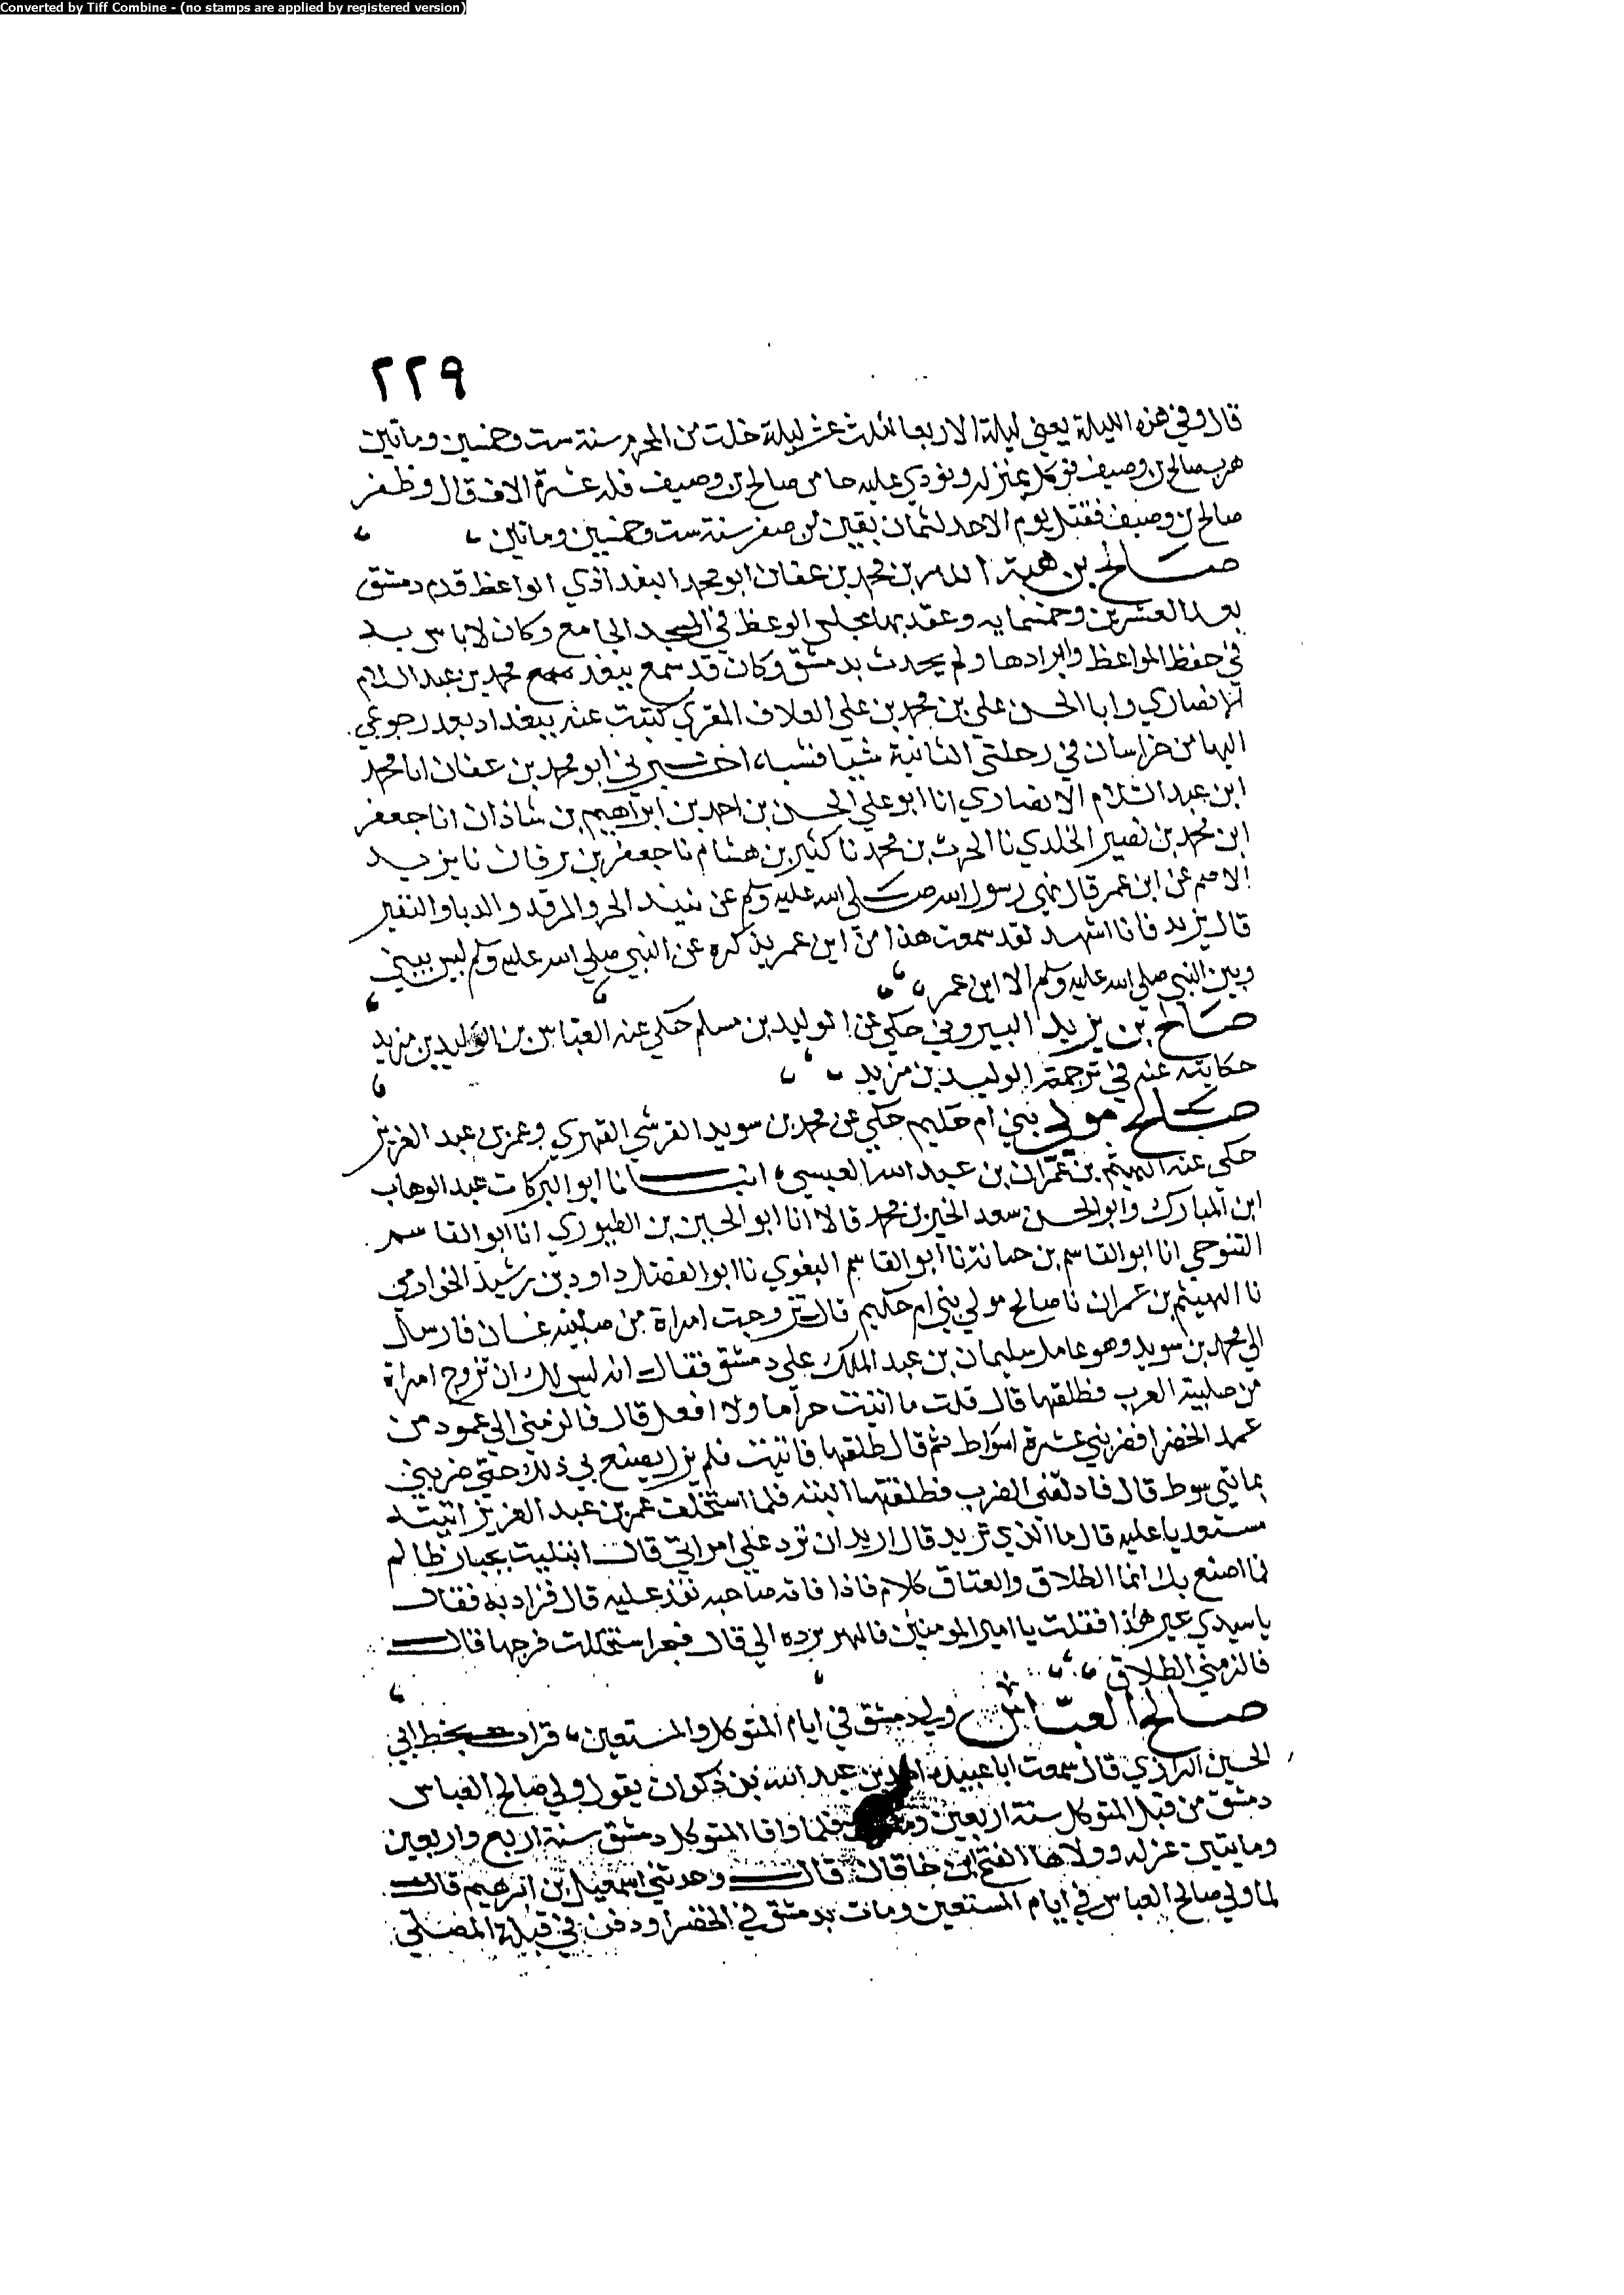 Converted by Tiff Combine - (no stamps are applied by registered version)
٢٢٩
قال وفي هذه الليلة يعني ليلة الاربعا لثلث عشر ليلة خلت من المحرم سنة ست وخمسين وماتين
هرب صالح بن وصيف فوكل بمنزله ونودي عليه من صالح بن وصيف فله عشرة الاف قال وظفر
صالح بن وصيف فقتل يوم الاحد لثمان بقين من صفر سنة ست وخمسين وماتين
صالح بن هبة الله بن محمد بن عفان ابو محمد البغداذي الواعظ قدم دمشق
بعد العشرين وخمسمايه وعقد بها مجلس الوعظ في المسجد الجامع وكان لا باس به
في حفظ المواعظ وايرادها ولم يحدث بدمشق وكان قد سمع ببغداد محمد بن عبد السلام
الانصاري وابا الحسن علي بن محمد بن علي العلاف المقري كتبت عنه ببغداد بعد رجوعي
اليها من خراسان في رحلتي الثانية شيا فشيا، اخبرني ابو محمد بن عفان انا محمد
ابن عبد السلام الانصاري انا ابو علي الحسن بن احمد بن ابراهيم بن شاذان انا جعفر
ابن محمد بن نصير الخلدي نا الحرث بن محمد نا كثير بن هشام نا جعفر بن برقان نا يزيد
الاصم عن ابن عمر قال نهي رسول الله صلى الله عليه وسلم عن نبيذ الجر والمزفد والدبا والنقير
قال يزيد فانا اشهد لقد سمعت هذا من ابن عمر يذكره عن النبي صلي الله عليه وسلم ليس بيني
وبين النبي صلي الله عليه وسلم الا ابن عمر
صالح بن يزيد البيروني حكي عن الوليد بن مسلم حكي عنه العباس بن الوليد بن مزيد
حكايته عنه في ترجمة الوليد بن مزيد
صالح مولي بني ام حكيم حكي عن محمد بن سويد القرشي الفهري وعمر بن عبد العزيز
حكى عنه الهيثم بن عمران بن عبد الله العبسي، انبانا ابو البركات عبد الوهاب
ابن المبارك وابو الحسن سعد الخير بن محمد قالا انا ابو الحسين بن الطيوري انا ابو القاسم
التنوخي انا ابو القاسم بن حبانة نا ابو القاسم البغوي نا ابو الفضل داود بن رشيد الخوارزمي
نا الهيثم بن عمران نا صالح مولي بني ام حكيم قال تزوجت امراة من صلبيه غسان فارسل
الي محمد بن سويد وهو عامل سليمان بن عبد الملك علي دمشق فقال انه ليس لك ان تزوج امراة
من صلبية العرب فطلقها قال قلت ما اتيت حراما ولا افعل قال فالزمني الى عمود من
عمد الخضرا فضربني عشرة اسواط ثم قال طلقها فابيت فلم يزل يصنع بي ذلك حتي ضربني
بمايتي سوط قال فاذلقني الضرب فطلقتها البته فلما استخلف عمر بن عبد العزيز اتيته
مستعديا عليه قال ما الذي تريد قال اريد ان ترد علي امراتي قال ابتليت بجبار ظالم
فما اصنع بك انما الطلاق والعتاق كلام فاذا فاه صاحبه نفذ عليه قال فزاد به فقال
يا سيدي غير هذا فقلت يا امير المومنين برده الي قال استحللت فرجها قال
فالزمني الطلاق
صالح العباس ولي دمشق في ايام المتوكل والمستعين، قرات بخط ابي
الحسين الرازي قال سمعت ابا عبيدة احمد بن عبد الله بن ذكوان يقول ولي صالح العباس
دمشق من قبل المتوكل سنة اربعين فلما وافا المتوكل دمشق سنة اربع واربعين
ومايتين عزله وولاها الفتح ابن خاقان قال وحدثني اسمعيل بن ابرهيم قال
لما ولي صالح العباس في ايام المستعين ومات بدمشق في الخضرا ودفن في قبلة المصلي